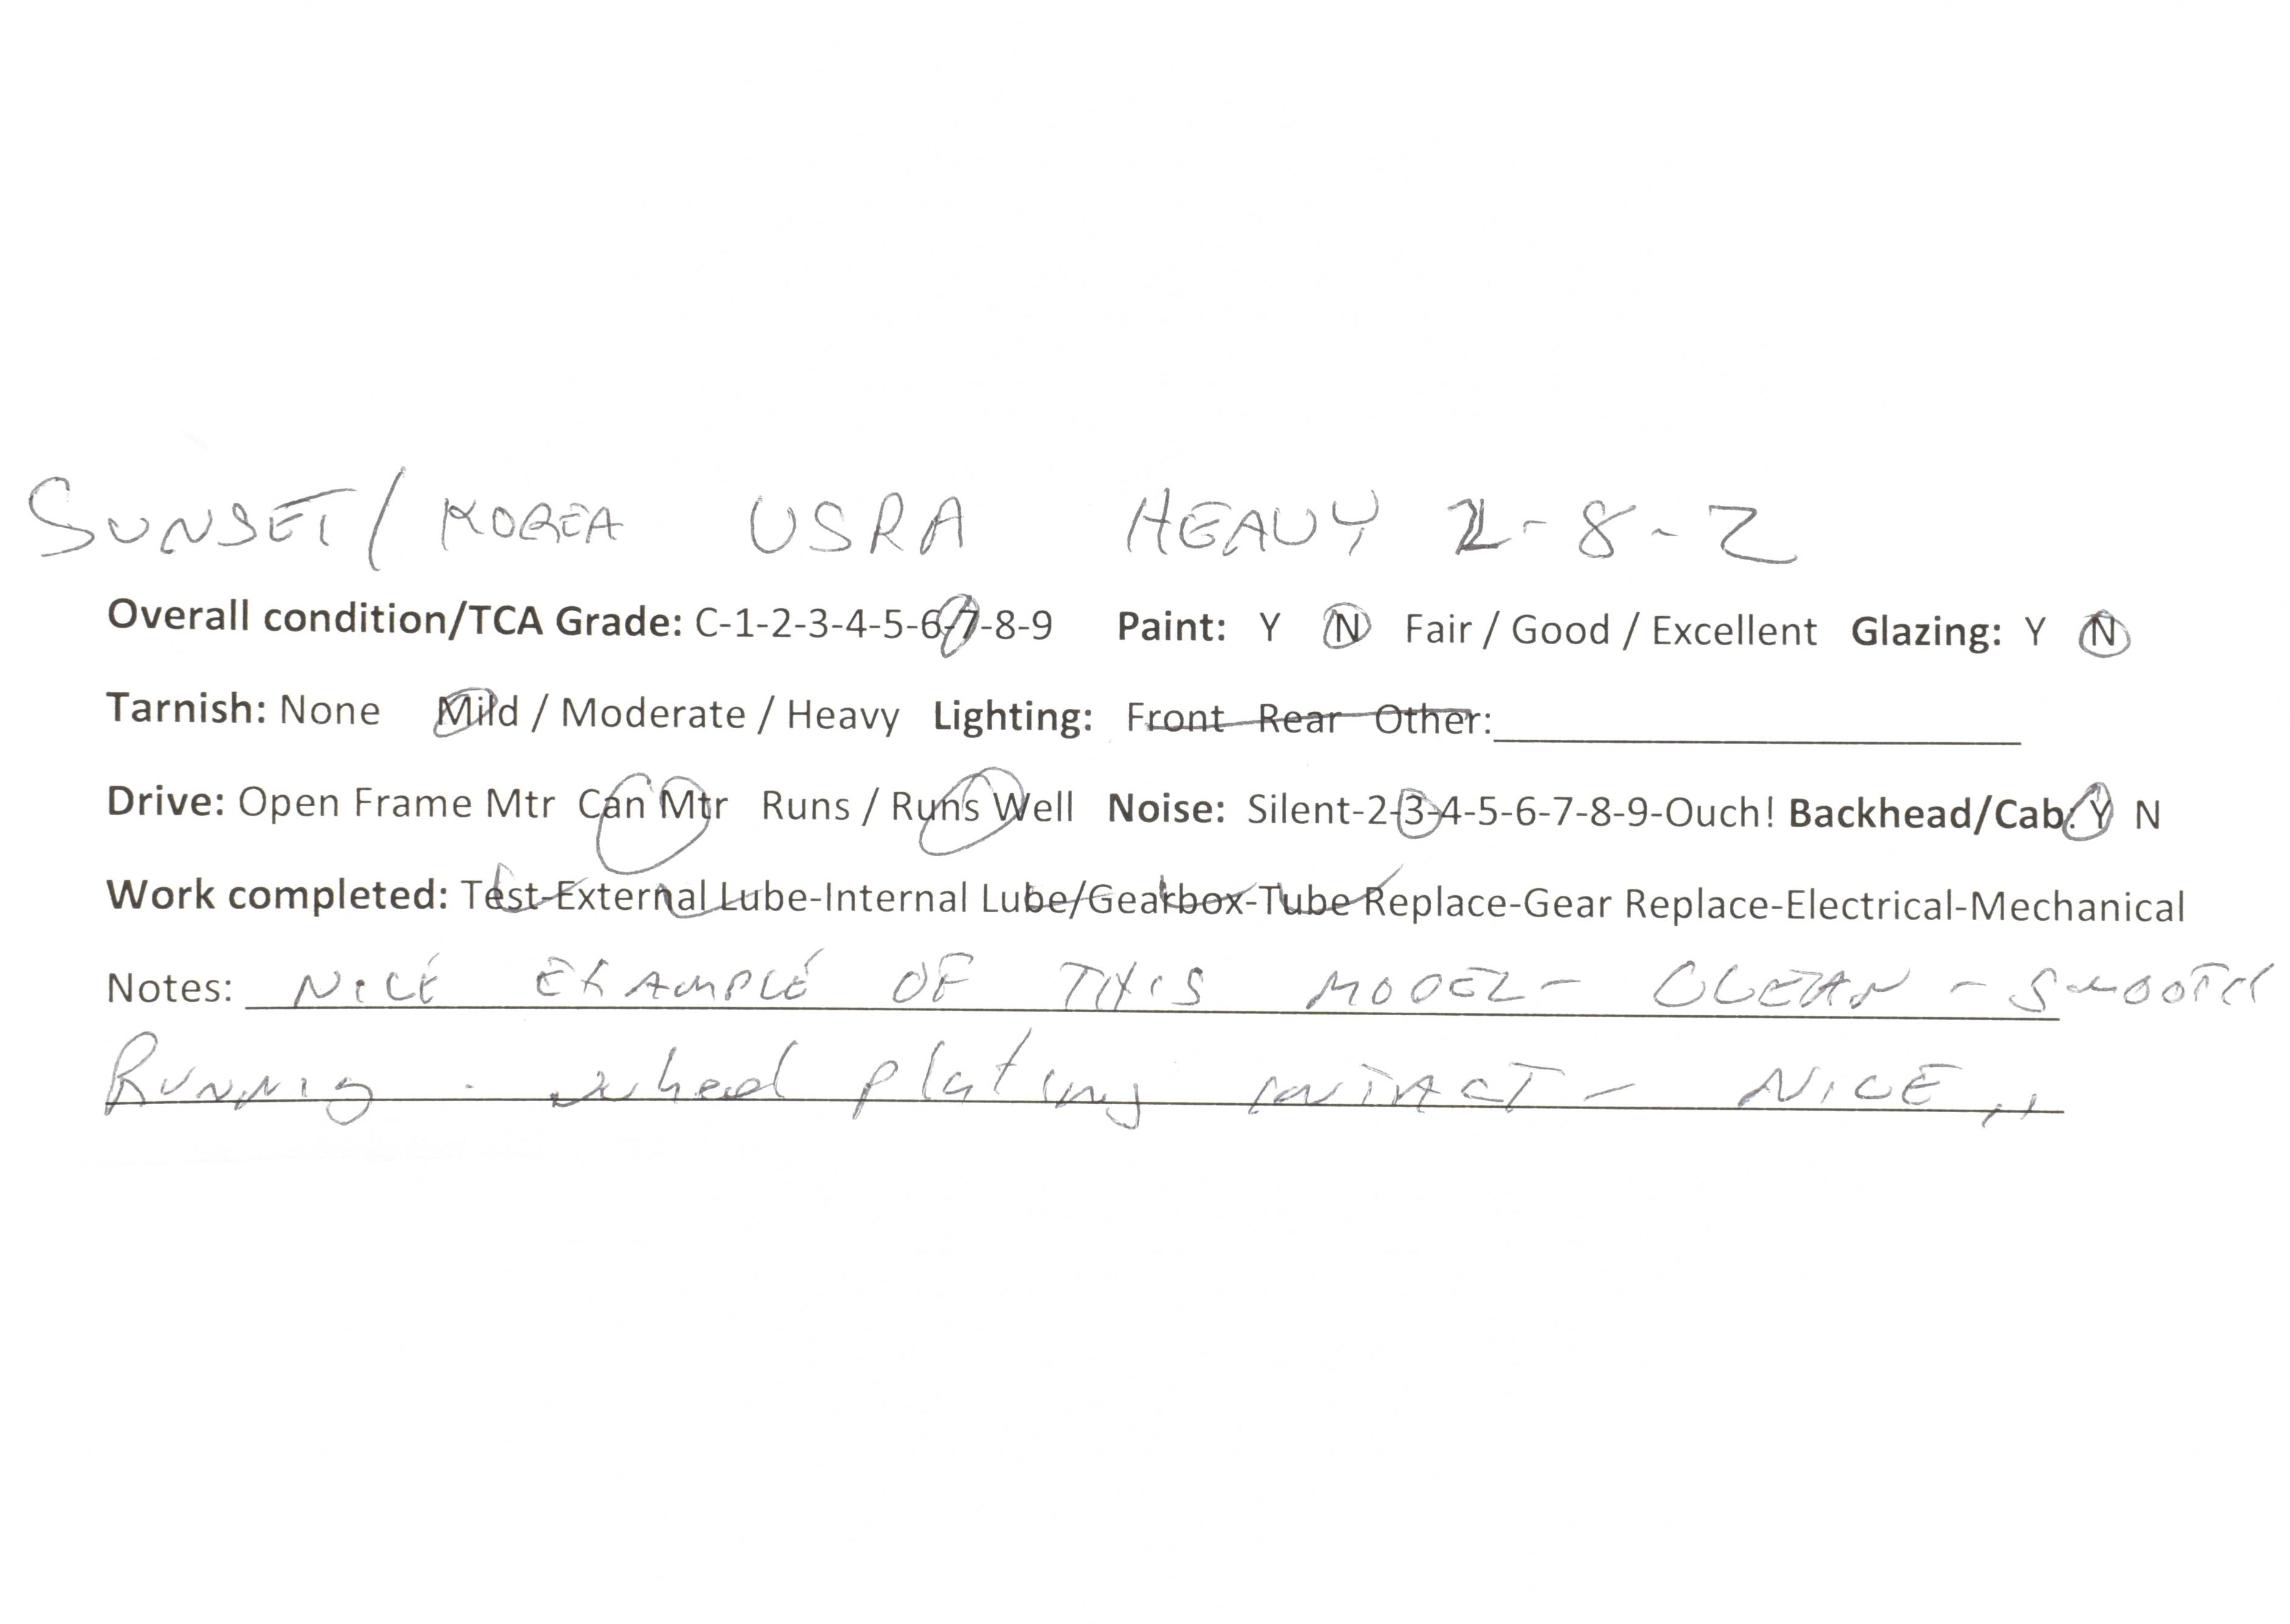 SUNSET/KOREA USRA HEAVY 2-8-2
Overall condition/TCA Grade: C-1-2-3-4-5-6-7-8-9 Paint: Y N Fair / Good / Excellent Glazing: Y N
Tarnish: None Mild / Moderate / Heavy Lighting: Front Rear Other:
Drive: Open Frame Mtr Can Mtr Runs / Runs Well Noise: Silent-2-3-4-5-6-7-8-9-Ouch! Backhead/Cab: Y N
Work completed: Test-External Lube-Internal Lube/Gearbox-Tube Replace-Gear Replace-Electrical-Mechanical
Notes: NICE EXAMPLE OF THIS MODEL - CLEAN - SMOOTH
RUNNING - wheel plating INTACT - NICE,,